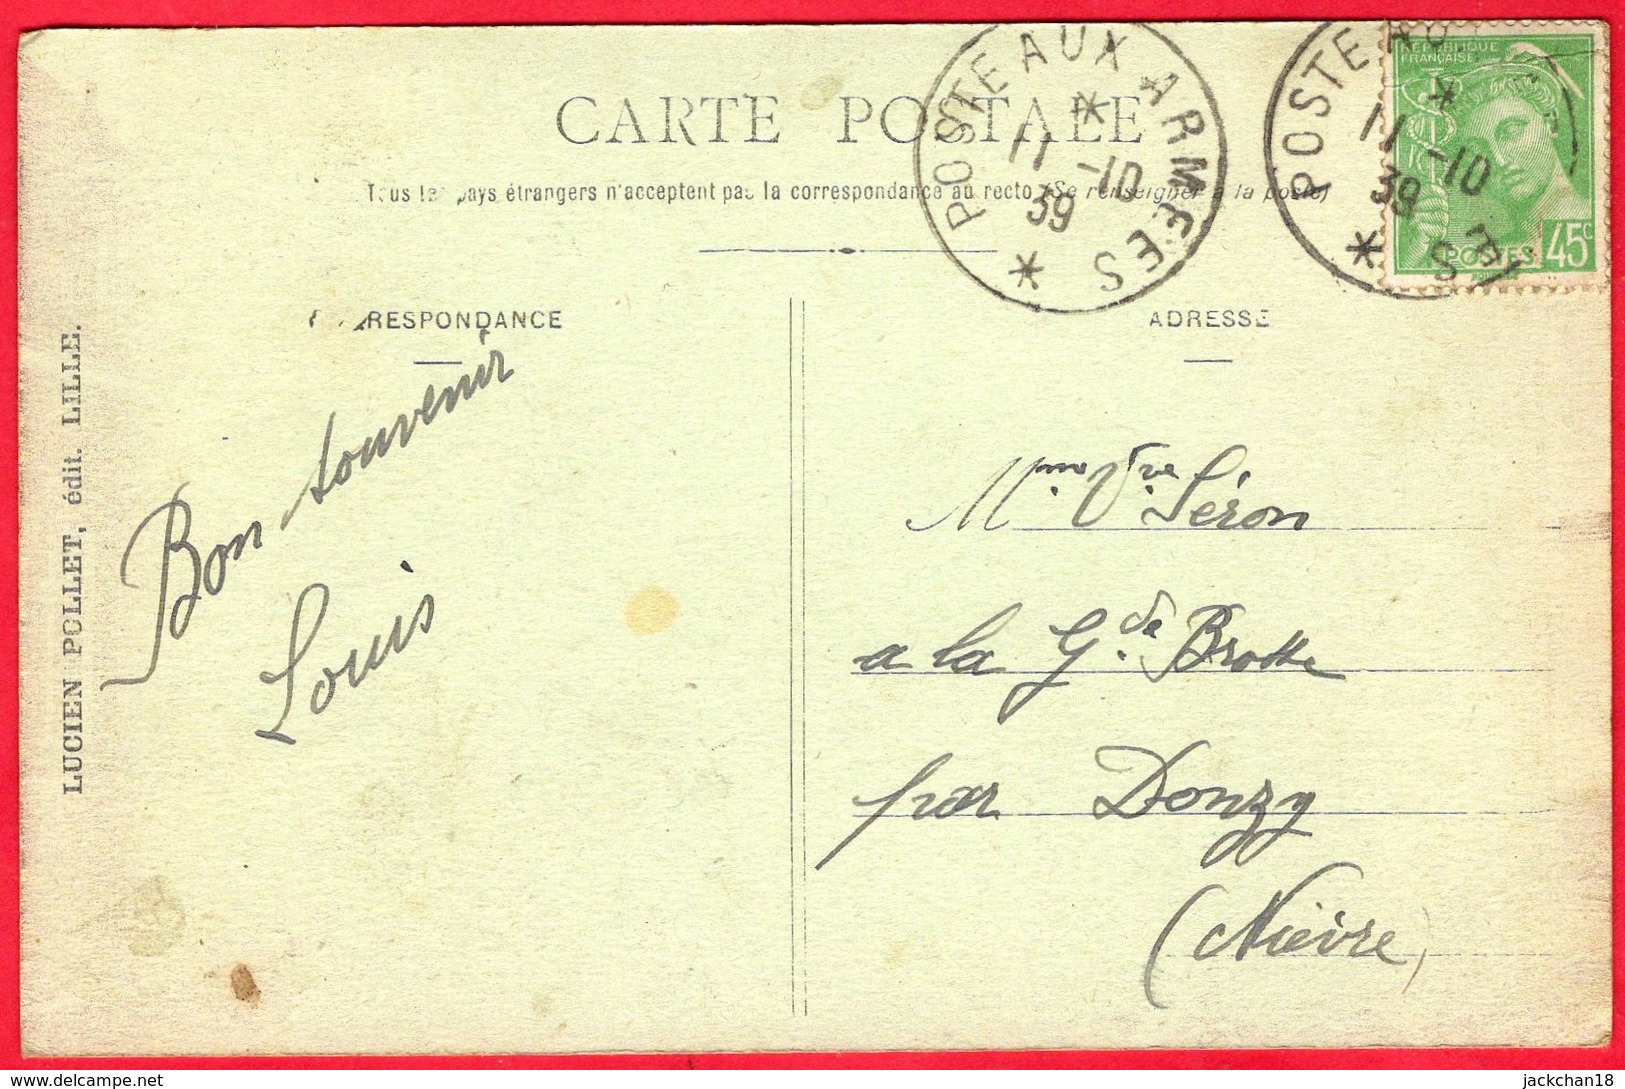 CARTE POSTALE
Tous les pays étrangers n'acceptent pas la correspondance au recto (Se renseigner à la poste)
POSTE AUX ARMEES
*
11 -10
39
*
POSTE AUX ARMEES
*
11 -10
39
*
RÉPUBLIQUE
FRANÇAISE
POSTES 45c
RESPONDANCE
ADRESSE
Bon souvenir
Louis
Mme Vve Séron
a la Gde Brotte
par Donzy
(Nièvre)
LUCIEN POLLET, édit. LILLE.
jackchan18